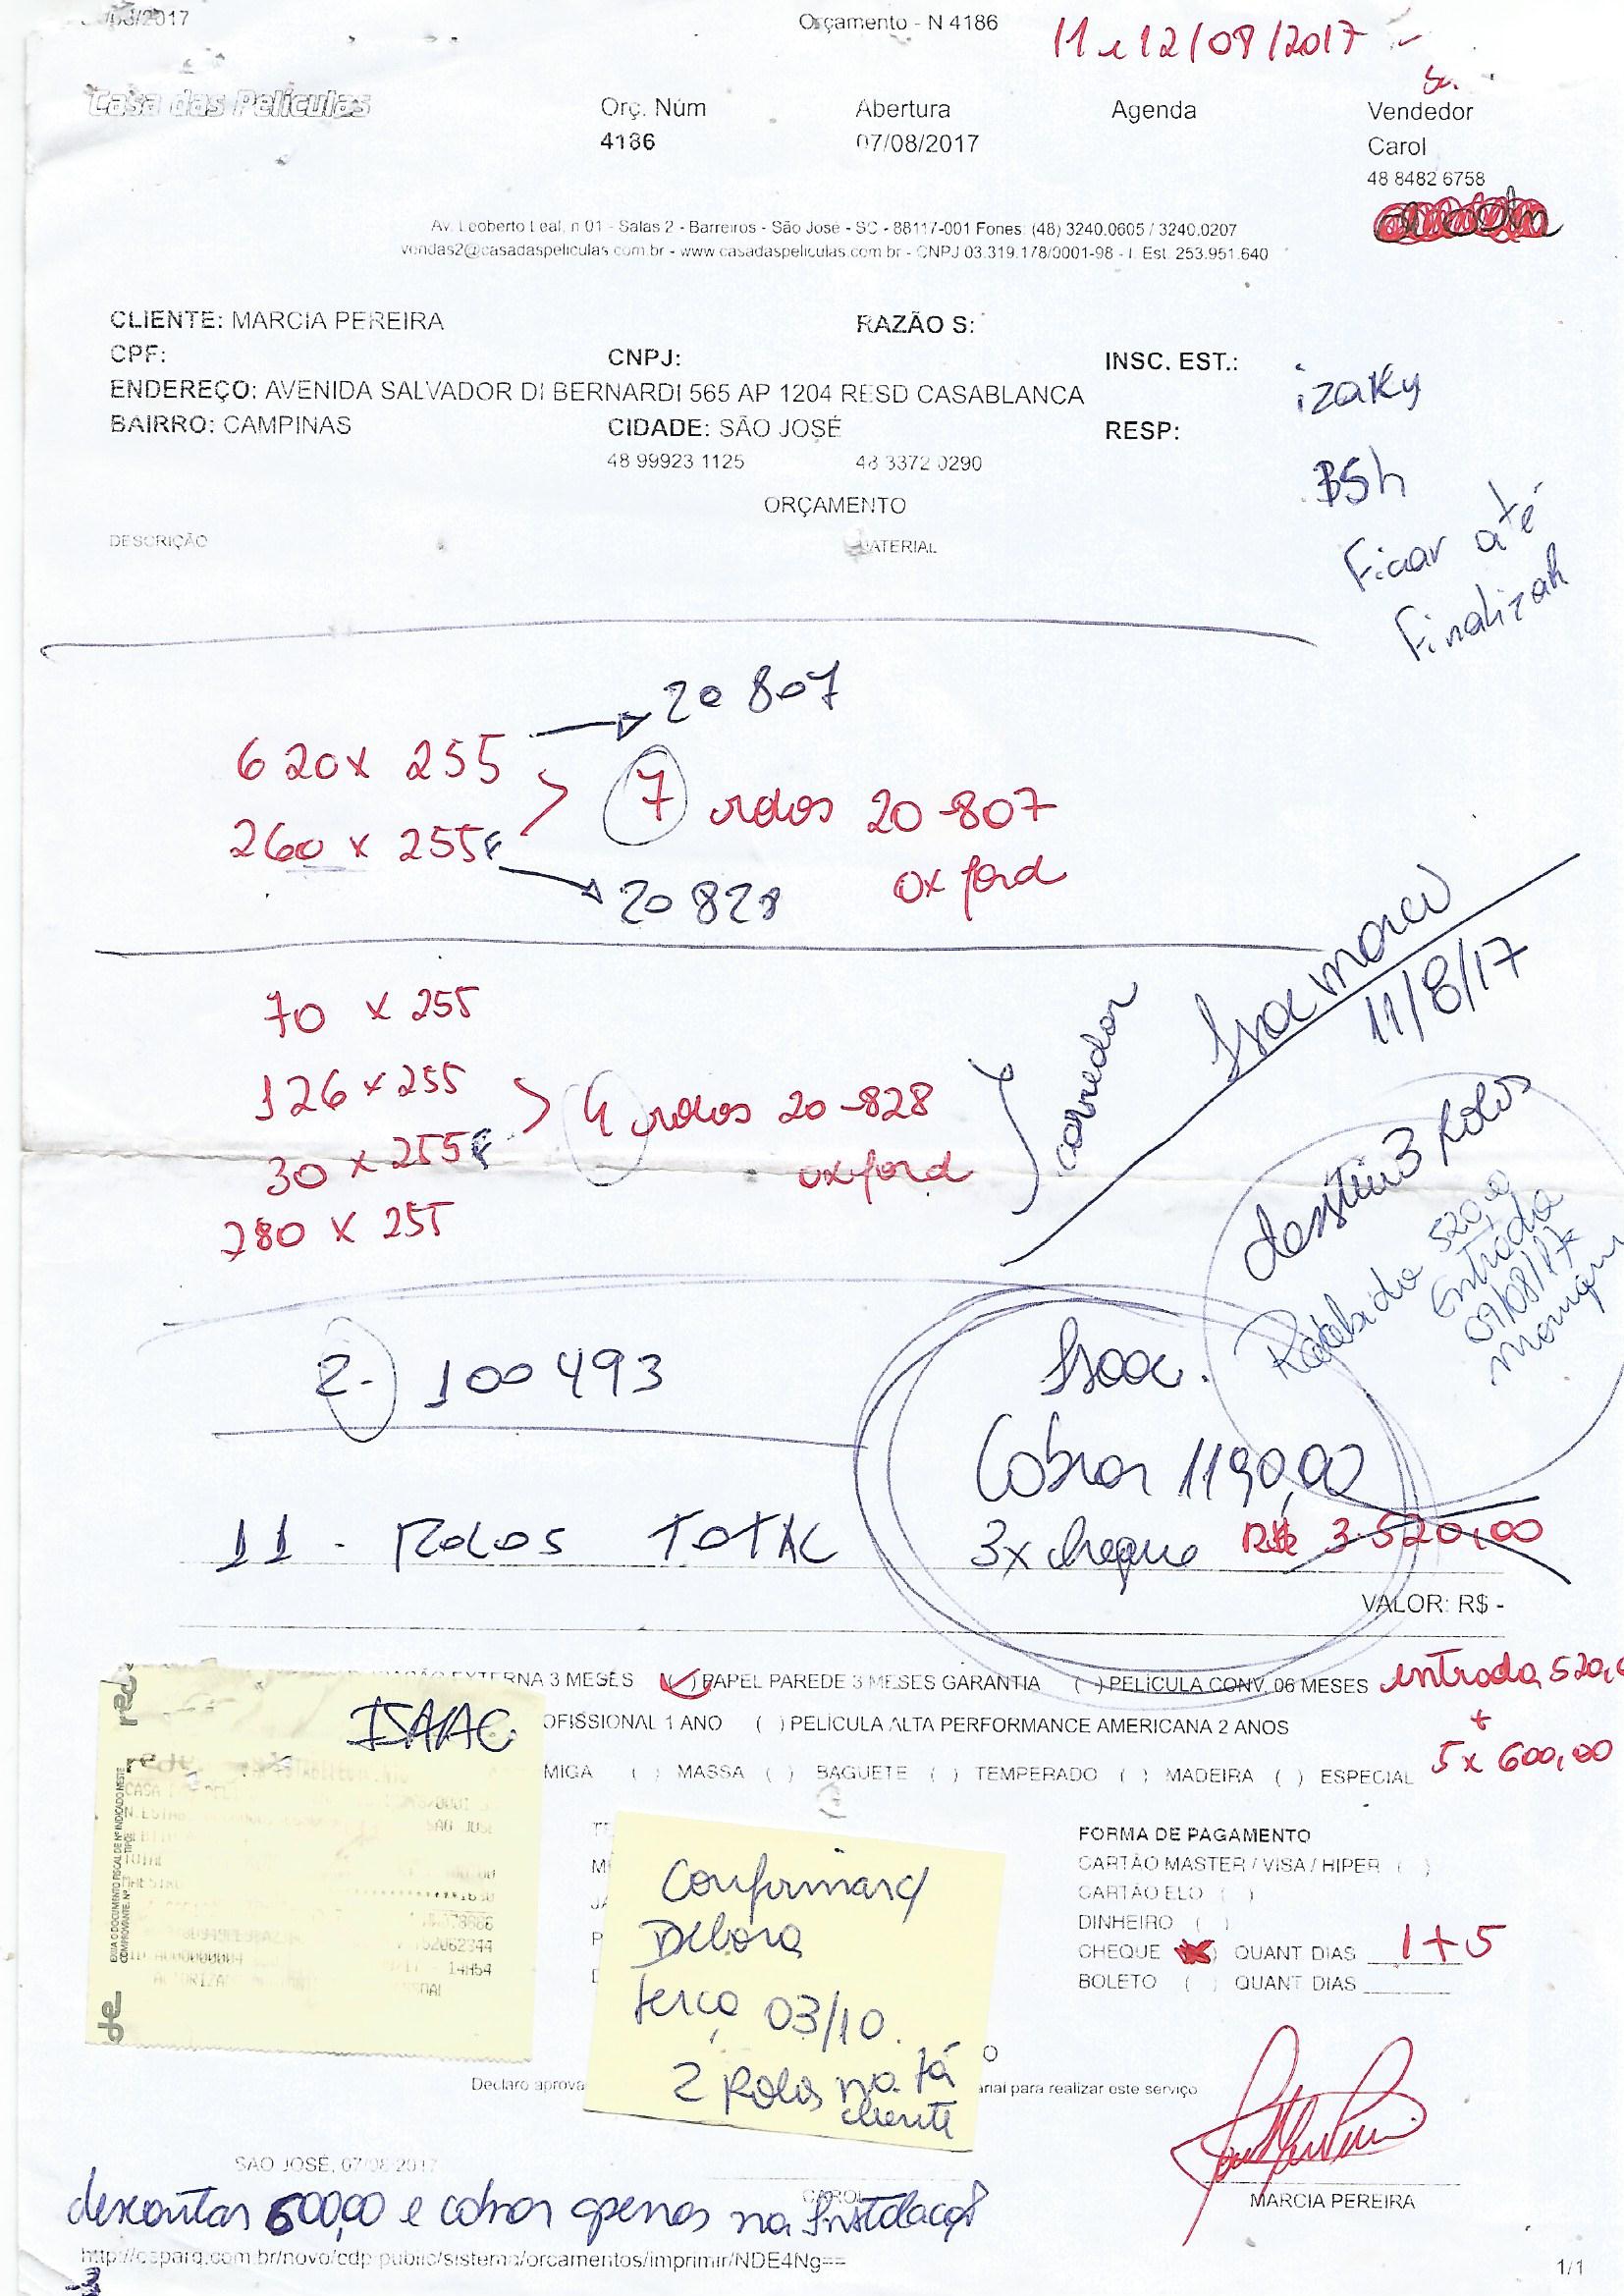 /08/2017 Orçamento - N 4186
11 e 12/08/2017
Casa das Películas
Orç. Núm Abertura Agenda Vendedor
4186 07/08/2017 Carol
48 8482 6758
Av. Leoberto Leal, n 01 - Salas 2 - Barreiros - São José - SC - 88117-001 Fones: (48) 3240.0605 / 3240.0207
vendas2@casadaspeliculas.com.br - www.casadaspeliculas.com.br - CNPJ 03.319.178/0001-98 - I. Est. 253.951.640
CLIENTE: MARCIA PEREIRA RAZÃO S:
CPF: CNPJ: INSC. EST.:
ENDEREÇO: AVENIDA SALVADOR DI BERNARDI 565 AP 1204 RESD CASABLANCA
BAIRRO: CAMPINAS CIDADE: SÃO JOSÉ RESP:
48 99923 1125 48 3372 0290
izaky
Ficar até
Finalizar
ORÇAMENTO
DESCRIÇÃO MATERIAL
20 807
620 x 255
7 rolos 20-807
260 x 255
oxford
20 828
Isac
11/8/17
70 x 255
126 x 255
4 rolos 20-828
30 x 255
oxford
280 x 255
corredor
3 Rolos
520,00
Entrada
09/08/17
2. 100493
Isaac.
Cobrar 1190,00
3x cheque R$ 3.520,00
11 - ROLOS TOTAL
VALOR: R$ -
EXTERNA 3 MESES ( ) PAPEL PAREDE 3 MESES GARANTIA ( ) PELÍCULA CONV. 06 MESES
entrada 520,0
+
5 x 600,00
ISAAC.
OFISSIONAL 1 ANO ( ) PELÍCULA ALTA PERFORMANCE AMERICANA 2 ANOS
MIGA ( ) MASSA ( ) BAGUETE ( ) TEMPERADO ( ) MADEIRA ( ) ESPECIAL
FORMA DE PAGAMENTO
CARTÃO MASTER / VISA / HIPER ( )
CARTÃO ELO ( )
DINHEIRO ( )
CHEQUE ( ) QUANT DIAS 1+5
BOLETO ( ) QUANT DIAS
Débora
terça 03/10.
2 Rolos no tá
cliente
Declaro aprova
arial para realizar este serviço
SÃO JOSÉ, 07/08/2017
CAROL
MARCIA PEREIRA
descontar 600,00 e cobrar apenas na Instalação
http://osparq.com.br/novo/cdp-public/sistema/orcamentos/imprimir/NDE4Ng==
1/1